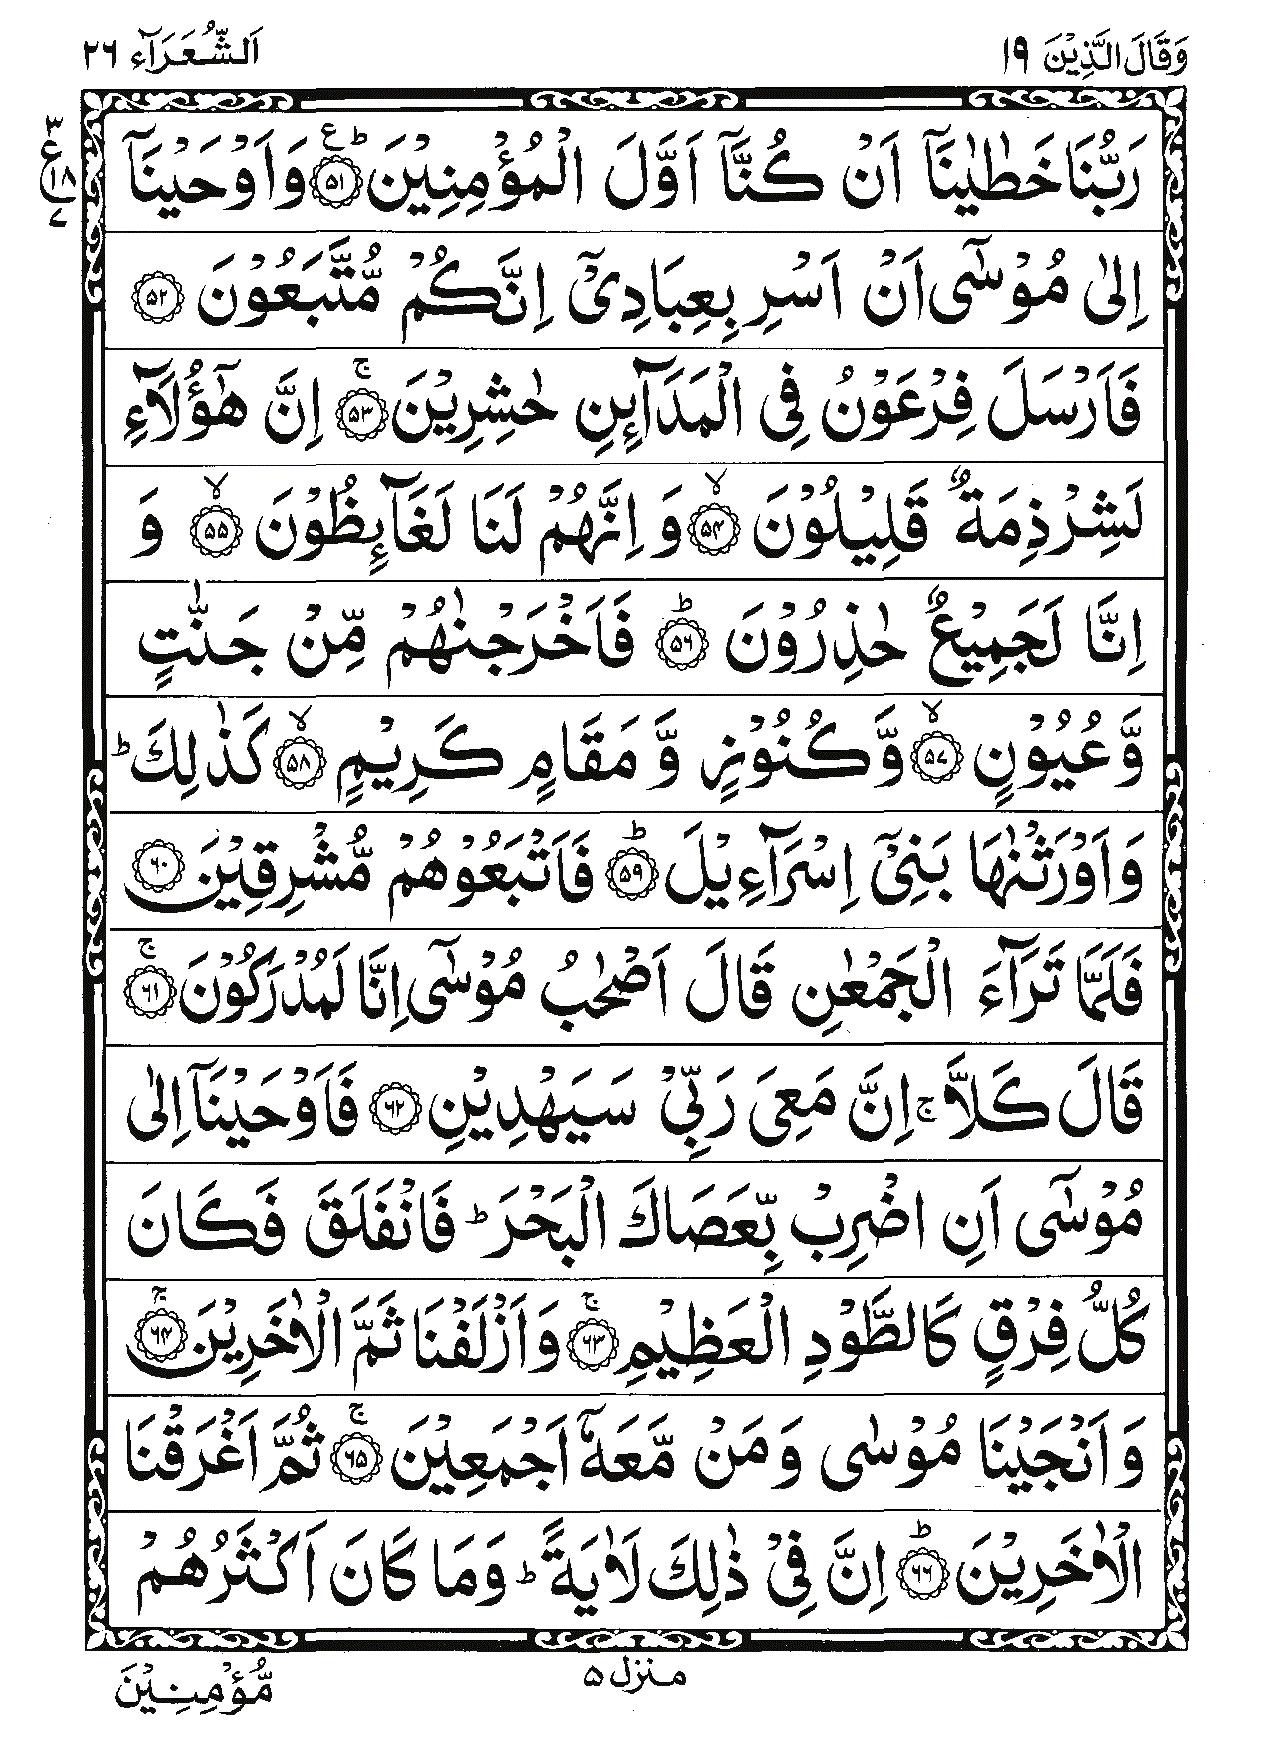 وَقَالَ الَّذِيْنَ ١٩
اَلشُّعَرَآء ٢٦
رَبُّنَا خَطٰيٰنَاۤ اَنْ كُنَّاۤ اَوَّلَ الْمُؤْمِنِيْنَ ؕ ع ﴿۵۱﴾ وَاَوْحَيْنَاۤ
٣ ع ١٨ ٧
اِلٰى مُوْسٰۤى اَنْ اَسْرِ بِعِبَادِىْۤ اِنَّكُمْ مُّتَّبَعُوْنَ ﴿۵۲﴾
فَاَرْسَلَ فِرْعَوْنُ فِى الْمَدَآئِنِ حٰشِرِيْنَ ۚ ﴿۵۳﴾ اِنَّ هٰۤؤُلَآءِ
لَشِرْذِمَةٌ قَلِيْلُوْنَ ۙ ﴿۵۴﴾ وَ اِنَّهُمْ لَنَا لَغَآئِظُوْنَ ۙ ﴿۵۵﴾ وَ
اِنَّا لَجَمِيْعٌ حٰذِرُوْنَ ؕ ﴿۵۶﴾ فَاَخْرَجْنٰهُمْ مِّنْ جَنّٰتٍ
وَّعُيُوْنٍ ۙ ﴿۵۷﴾ وَّكُنُوْزٍ وَّ مَقَامٍ كَرِيْمٍ ۙ ﴿۵۸﴾ كَذٰلِكَ ؕ
وَاَوْرَثْنٰهَا بَنِىْۤ اِسْرَآءِيْلَ ؕ ﴿۵۹﴾ فَاَتْبَعُوْهُمْ مُّشْرِقِيْنَ ﴿۶۰﴾
فَلَمَّا تَرَآءَ الْجَمْعٰنِ قَالَ اَصْحٰبُ مُوْسٰۤى اِنَّا لَمُدْرَكُوْنَ ۚ ﴿۶۱﴾
قَالَ كَلَّا ۚ اِنَّ مَعِىَ رَبِّىْ سَيَهْدِيْنِ ﴿۶۲﴾ فَاَوْحَيْنَاۤ اِلٰى
مُوْسٰۤى اَنِ اضْرِبْ بِّعَصَاكَ الْبَحْرَ ؕ فَانْفَلَقَ فَكَانَ
كُلُّ فِرْقٍ كَالطَّوْدِ الْعَظِيْمِ ۚ ﴿۶۳﴾ وَاَزْلَفْنَا ثَمَّ الْاٰخَرِيْنَ ۚ ﴿۶۴﴾
وَاَنْجَيْنَا مُوْسٰى وَمَنْ مَّعَهٗۤ اَجْمَعِيْنَ ۚ ﴿۶۵﴾ ثُمَّ اَغْرَقْنَا
الْاٰخَرِيْنَ ؕ ﴿۶۶﴾ اِنَّ فِىْ ذٰلِكَ لَاٰيَةً ؕ وَمَا كَانَ اَكْثَرُهُمْ
منزل ۵
مُّؤْمِنِيْنَ